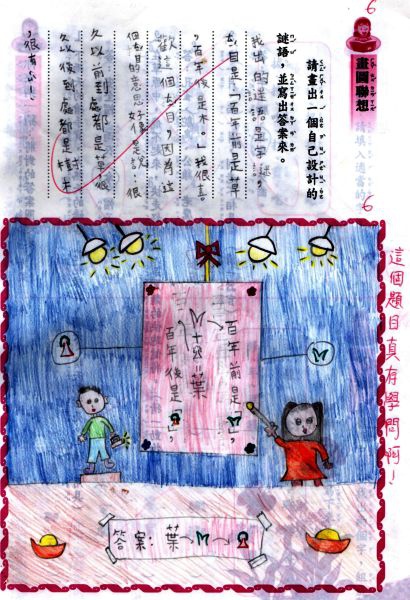 6
畫圖聯想
請畫出一個自己設計的
謎語,並寫出答案來。
我出的謎語是字謎,
目是:百年前是草
,百年後是木。」我很喜
歡這個目,因為這
個目的意思好像是說:很
久以前到處都是草,很
久以後到處都是樹木
,很有!
6
這個題目真有學問啊!
百年前是
=葉
百年後是
答案:葉→→